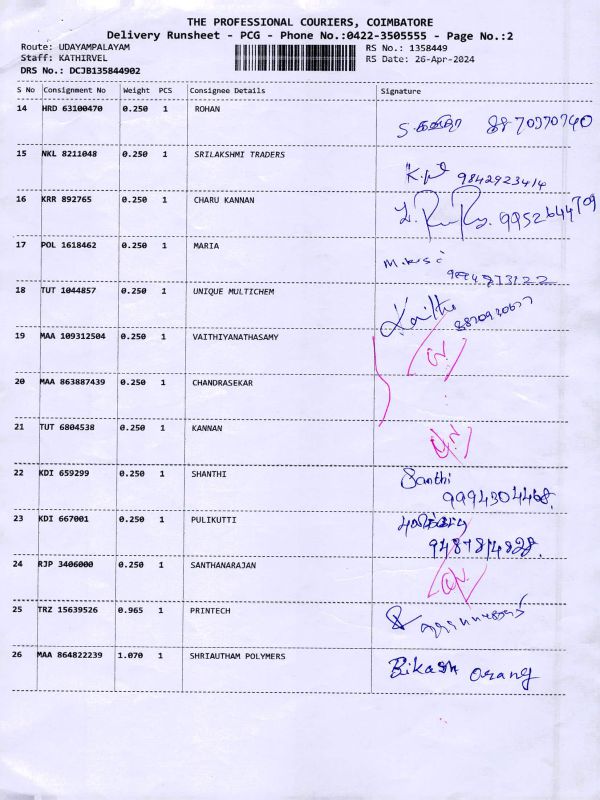 THE PROFESSIONAL COURIERS, COIMBATORE
Delivery Runsheet - PCG - Phone No.:0422-3505555 - Page No.:2
Route: UDAYAMPALAYAM RS No.: 1358449
Staff: KATHIRVEL RS Date: 26-Apr-2024
DRS No.: DCJB135844902
S No Consignment No Weight PCS Consignee Details Signature
14 HRD 63100470 0.250 1 ROHAN
15 NKL 8211048 0.250 1 SRILAKSHMI TRADERS
9842923414
16 KRR 892765 0.250 1 CHARU KANNAN
9952644709
17 POL 1618462 0.250 1 MARIA
18 TUT 1044857 0.250 1 UNIQUE MULTICHEM
19 MAA 109312504 0.250 1 VAITHIYANATHASAMY
20 MAA 863887439 0.250 1 CHANDRASEKAR
21 TUT 6804538 0.250 1 KANNAN
22 KDI 659299 0.250 1 SHANTHI Santhi
9994304468.
23 KDI 667001 0.250 1 PULIKUTTI
9487814828.
24 RJP 3406000 0.250 1 SANTHANARAJAN
25 TRZ 15639526 0.965 1 PRINTECH
26 MAA 864822239 1.070 1 SHRIAUTHAM POLYMERS Bikash Orang